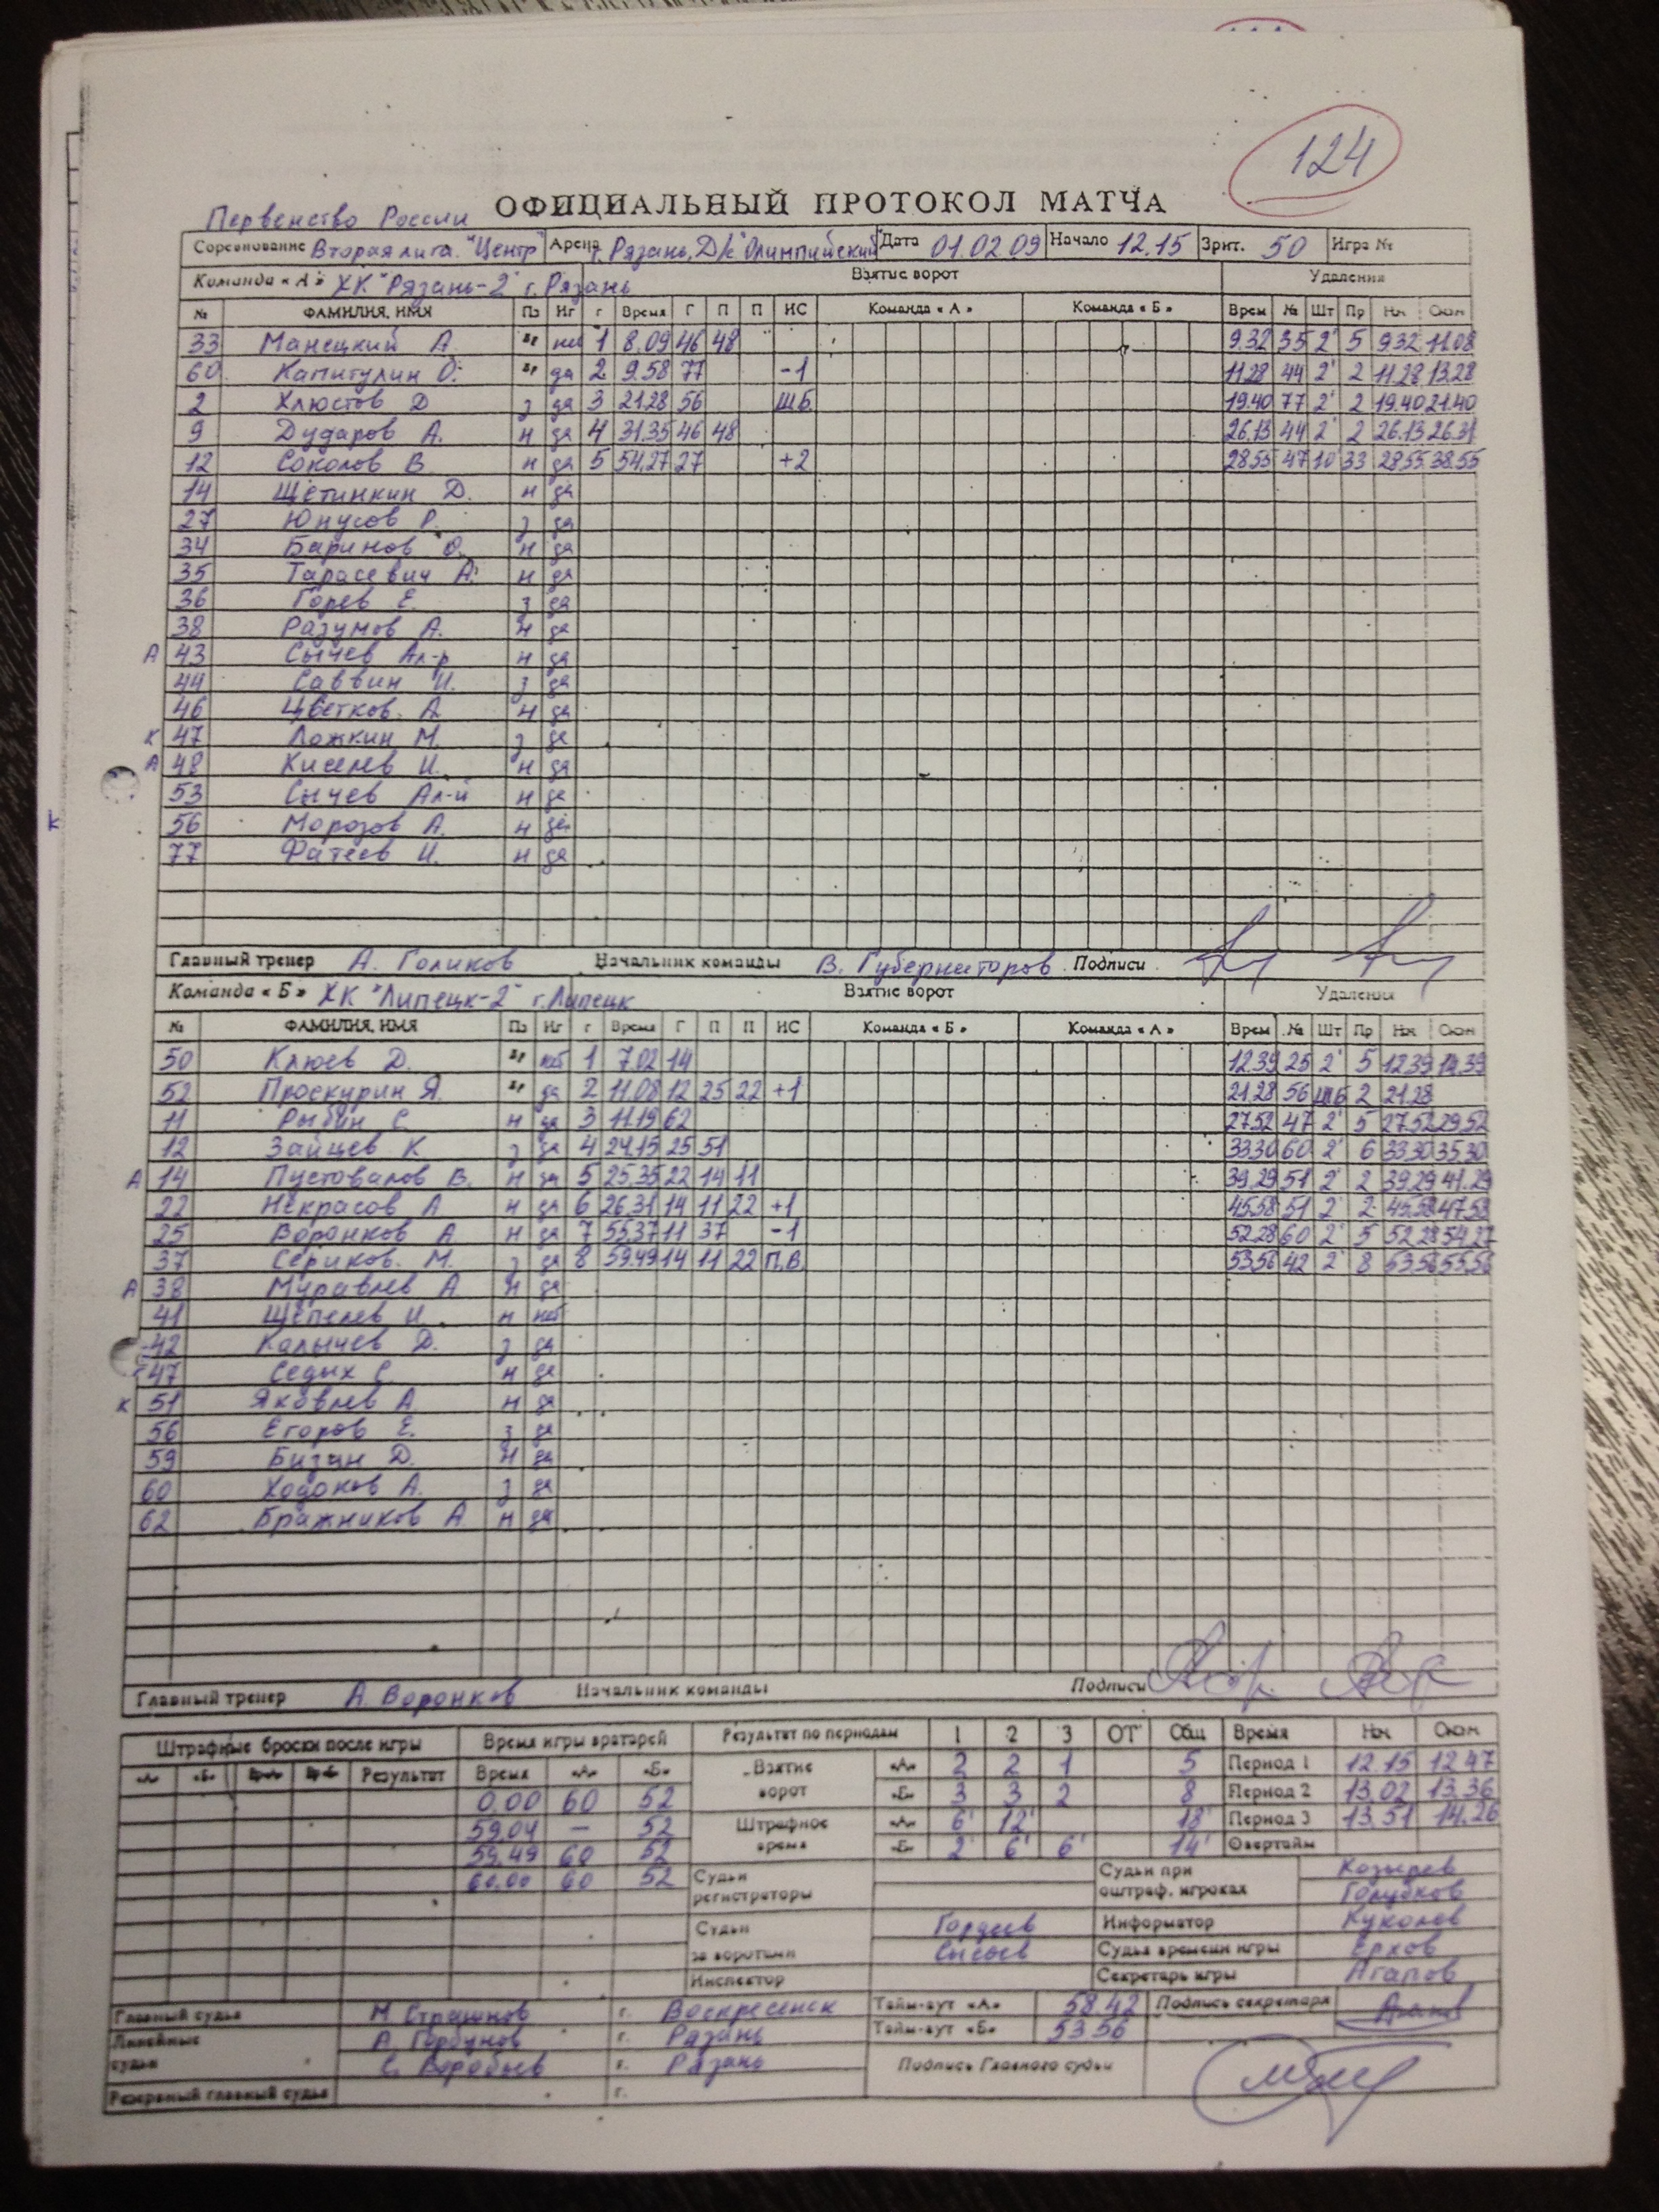 124
ОФИЦИАЛЬНЫЙ ПРОТОКОЛ МАТЧА
Первенство России
Соревнование Вторая лига. "Центр" Арена г. Рязань, Д/с "Олимпийский" Дата 01.02.09 Начало 12.15 Зрит. 50 Игра №
Команда «А» ХК "Рязань-2" г. Рязань Взятие ворот Удаления
№ ФАМИЛИЯ, ИМЯ Пз Иг г Время Г П П ИС Команда «А» Команда «Б» Врем № Шт Пр Нач Окон
33 Манецкий А. вр нет 1 8.09 46 48 9.32 35 2' 5 9.32 11.08
60 Капитулин О. вр да 2 9.58 77 -1 11.28 44 2' 2 11.28 13.28
2 Хлюстов Д з да 3 21.28 56 Ш.Б. 19.40 77 2' 2 19.40 21.40
9 Дударов А. н да 4 31.35 46 48 26.13 44 2' 2 26.13 26.31
12 Соколов В н да 5 54.27 27 +2 28.55 47 10' 33 28.55 38.55
14 Щетинкин Д. н да
27 Юнусов Р. з да
34 Баринов О. н да
35 Тарасевич А. н да
36 Горев Е. з да
38 Разумов А. н да
А 43 Сычев Ал-р н да
44 Саввин И. з да
46 Цветков. А н да
К 47 Ложкин М. з да
А 48 Киселев И. н да
53 Сычев Ал-й н да
56 Морозов А. н да
77 Фатеев И. н да
Главный тренер А. Голиков Начальник команды В. Губернаторов Подписи
Команда «Б» ХК "Липецк-2" г. Липецк Взятие ворот Удаления
№ ФАМИЛИЯ, ИМЯ Пз Иг г Время Г П П ИС Команда «Б» Команда «А» Врем № Шт Пр Нач Окон
50 Клюев Д. вр нет 1 7.02 14 12.39 25 2' 5 12.39 14.39
52 Проскурин Я. вр да 2 11.08 12 25 22 +1 21.28 56 ШБ 2 21.28
11 Рыбин С. н да 3 11.19 62 27.52 47 2' 5 27.52 29.52
12 Зайцев К з да 4 24.15 25 51 33.30 60 2' 6 33.30 35.30
А 14 Пустовалов В. н да 5 25.35 22 14 11 39.29 51 2' 2 39.29 41.29
22 Некрасов А н да 6 26.31 14 11 22 +1 45.58 51 2' 2 45.58 47.58
25 Воронков А н да 7 55.37 11 37 -1 52.28 60 2' 5 52.28 54.27
37 Сериков. М. з да 8 59.49 14 11 22 П.В. 53.56 42 2' 8 53.56 55.56
А 38 Муравлев А н да
41 Щепелев И. н нет
42 Калычев Д. з да
47 Седых С. н да
К 51 Яковлев А н да
56 Егоров Е. з да
59 Бизин Д. н да
60 Ходонов А. з да
62 Бражников А н да
Главный тренер А. Воронков Начальник команды Подписи
Штрафные броски после игры Время игры вратарей Результат по периодам 1 2 3 ОТ Общ Время Нач Окон
«А» «Б» Вр«А» Вр«Б» Результат Время «А» «Б» Взятие ворот «А» 2 2 1 5 Период 1 12.15 12.47
0.00 60 52 «Б» 3 3 2 8 Период 2 13.02 13.36
59.04 — 52 Штрафное время «А» 6' 12' 18' Период 3 13.51 14.26
59.49 60 52 «Б» 2' 6' 6' 14' Овертайм
60.00 60 52 Судьи регистраторы Судьи при оштраф. игроках Козырев
Голубков
Судьи за воротами Гордеев Информатор Куколев
Сысоев Судья времени игры Ерхов
Инспектор Секретарь игры Агапов
Главный судья М. Страшнов г. Воскресенск Тайм-аут «А» 58.42 Подпись секретаря
Линейные судьи А. Горбунов г. Рязань Тайм-аут «Б» 53.56
С. Воробьев г. Рязань Подпись Главного судьи
Резервный главный судья г.